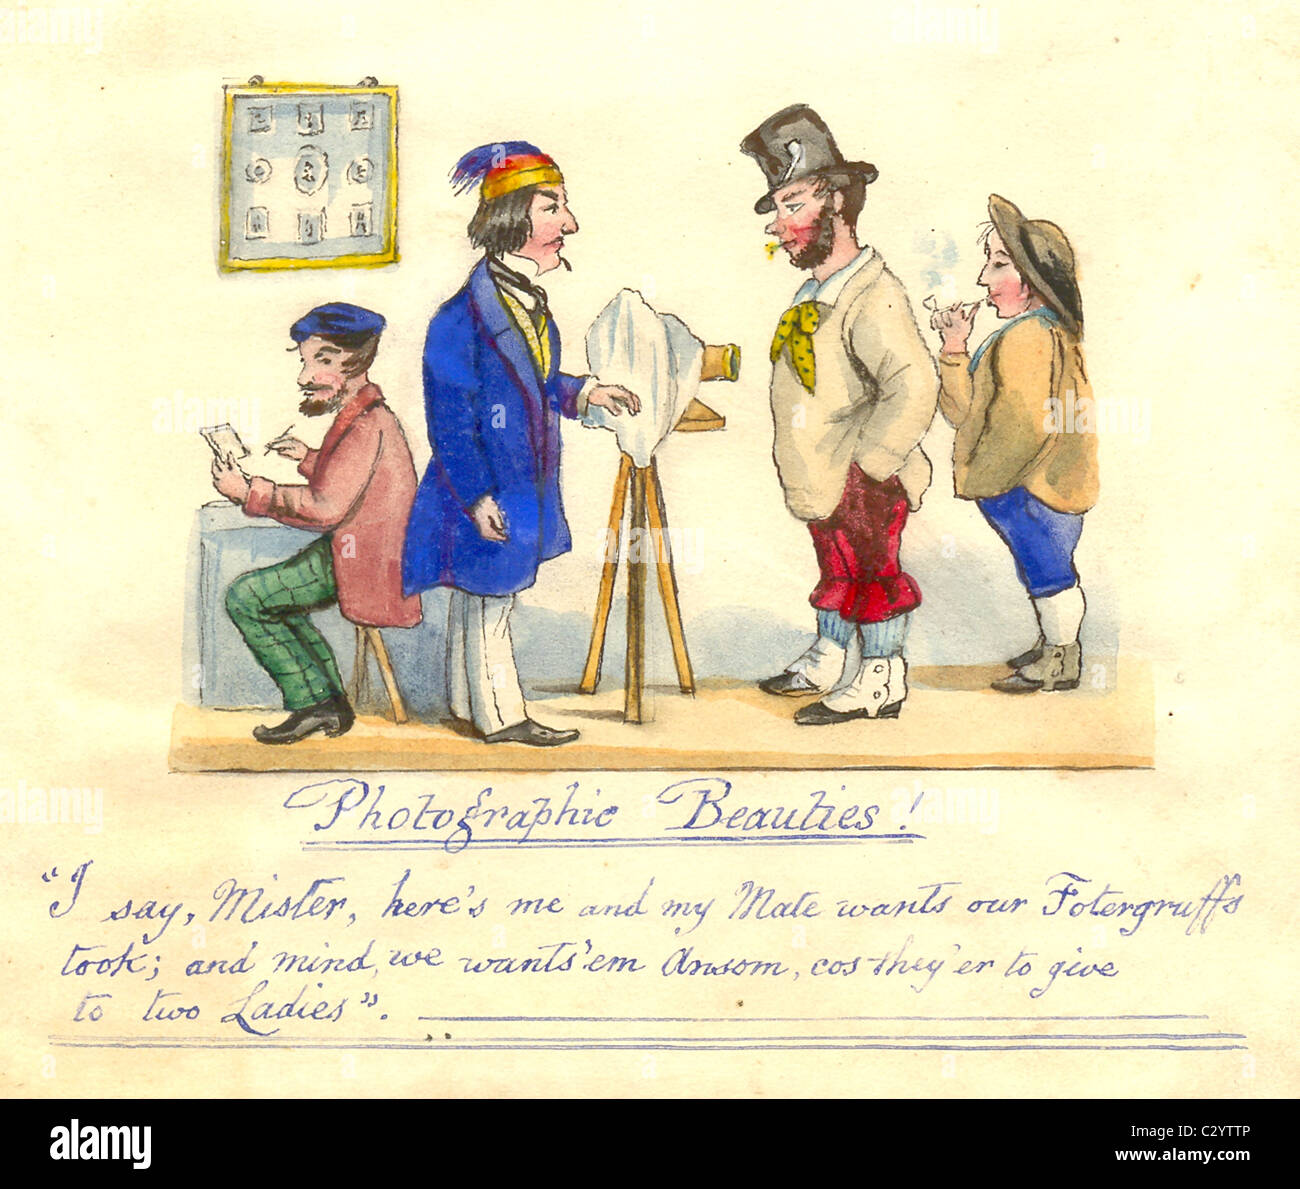 Photographic Beauties!
"I say, Mister, here's me and my Mate wants our Fotergruffs
took; and mind, we wants 'em Ansom, cos they'er to give
to two Ladies".
alamy
Image ID: C2YTTP
www.alamy.com